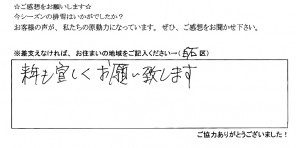 ☆ご感想をお願いします☆
今シーズンの排雪はいかがでしたか？
お客様の声が、私たちの原動力になっています。ぜひ、ご感想をお聞かせ下さい。
※差支えなければ、お住まいの地域をご記入ください→(白石区)
来年も宜しくお願い致します
ご協力ありがとうございました！